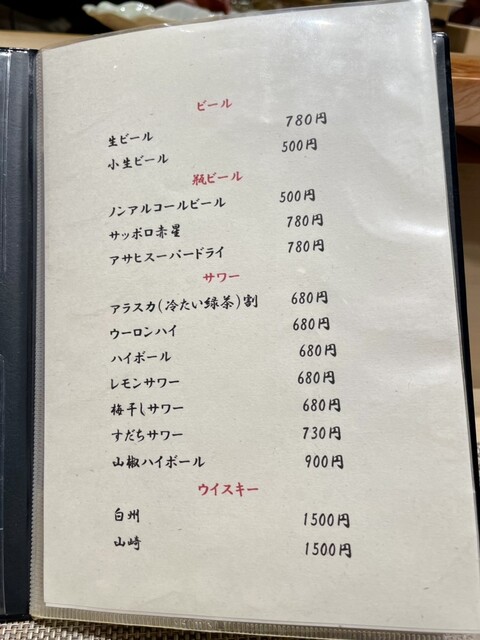 ビール
生ビール 780円
小生ビール 500円
瓶ビール
ノンアルコールビール 500円
サッポロ赤星 780円
アサヒスーパードライ 780円
サワー
アラスカ(冷たい緑茶)割 680円
ウーロンハイ 680円
ハイボール 680円
レモンサワー 680円
梅干しサワー 680円
すだちサワー 730円
山椒ハイボール 900円
ウイスキー
白州 1500円
山崎 1500円